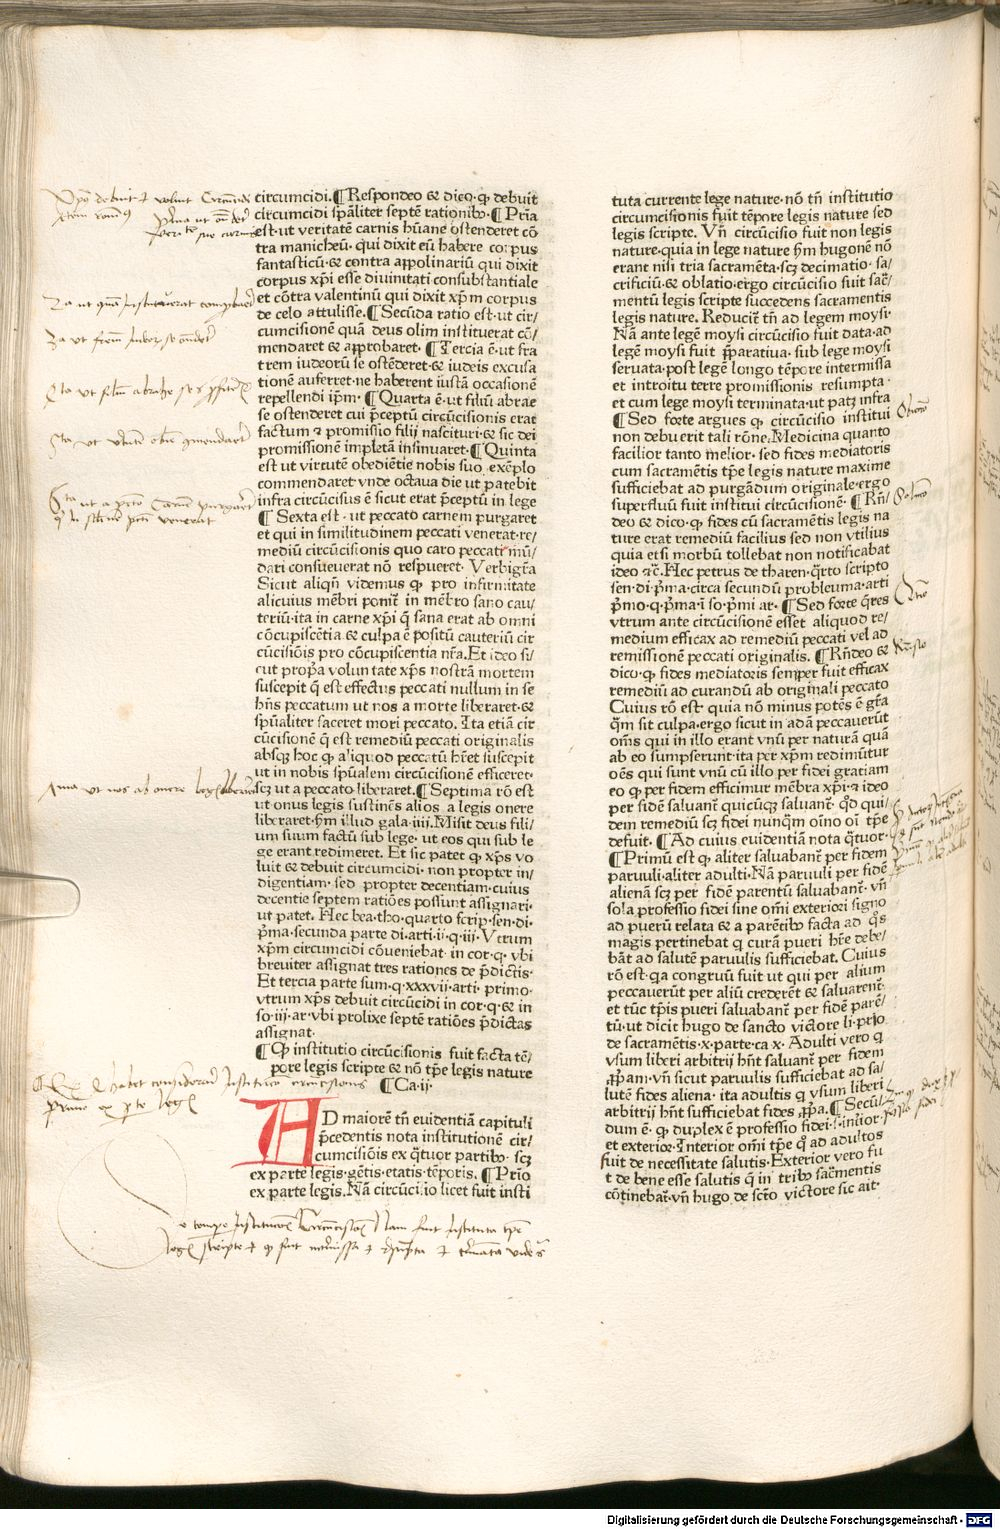 circumcidi.¶Respondeo & dico ꝙ debuit
circumcidi sp̄aliter septē rationibꝰ.¶Pria
est.ut veritatē carnis hūane ostenderet cō
tra manicheū.qui dixit eū habere corpus
fantasticū.& contra appolinariū qui dixit
corpus xp̄i esse diuinitati consubstantiale
et cōtra valentinū qui dixit xp̄m corpus
de celo attulisse.¶Secūda ratio est.ut cir/
cumcisionē quā deus olim instituerat cō/
mendaret & approbaret. ¶Tercia ē.ut fra
trem iudeorū se ostēderet.& iudeis excusa
tionē auferret.ne haberent iustā occasionē
repellendi ip̄m. ¶Quarta ē.ut filiū abrae
se ostenderet cui p̄ceptū circūcisionis erat
factum & promissio filij nascituri.& sic dei
promissionē impletā insinuaret.¶Quinta
est ut virtutē obediētie nobis suo exēplo
commendaret vnde octaua die ut patebit
infra circūcisus ē sicut erat p̄ceptū in lege
¶Sexta est. ut peccato carnem purgaret
et qui in similitudinem peccati venerat.re/
mediū circūcisionis quo caro peccati mū/
dari consueuerat nō respueret. Verbigr̄a
Sicut aliqn̄ videmus ꝙ pro infirmitate
alicuius mēbri ponit̄ in mēbro sano cau/
teriū.ita in carne xp̄i q̄ sana erat ab omni
cōcupiscētia & culpa ē positū cauteriū cir
cūcisiōis pro cōcupiscentia nr̄a.Et ideo si/
cut prop̄a voluntate xp̄s nostrā mortem
suscepit q̄ est effectus peccati nullum in se
hn̄s peccatum ut nos a morte liberaret.&
sp̄ualiter faceret mori peccato. Ita etiā cir
cūcisionē q̄ est remediū peccati originalis
absqꝫ hoc ꝙ aliquod peccatū hr̄et suscepit
ut in nobis sp̄ualem circūcisionē efficeret.
scꝫ ut a peccato liberaret.¶Septima rō est
ut onus legis sustinēs alios a legis onere
liberaret.hm̄ illud gala.iiij.Misit deus fili/
um suum factū sub lege. ut eos qui sub le
ge erant redimeret. Et sic patet ꝙ xp̄s vo
luit & debuit circumcidi.non propter in/
digentiam.sed propter decentiam.cuius
decentie septem ratiōes possunt assignari.
ut patet. Hec bea.tho.quarto scrip.sen.di.
p̄ma.secunda parte di.arti.ii.q.iij.Vtrum
xp̄m circumcidi cōueniebat.in cor.q. vbi
breuiter assignat tres rationes de p̄dictis.
Et tercia parte sum.q.xxxvij.arti.primo.
vtrum xp̄s debuit circūcidi in cor.q.& in
so.iij.ar.vbi prolixe septē ratiōes p̄dictas
assignat.
¶Ꝙ institutio circūcisionis fuit facta tē/
pore legis scripte & nō tp̄e legis nature
¶Ca.ij.
AD maiorē tn̄ euidentiā capituli
p̄cedentis nota institutionē cir/
cumcisiōis ex q̄tuor partibꝰ. scꝫ
ex parte legis.gētis.etatis.tēporis.¶Prio
ex parte legis.Nā circūcisio licet fuit insti
tuta currente lege nature.nō tn̄ institutio
circumcisionis fuit tēpore legis nature sed
legis scripte. Vn̄ circūcisio fuit non legis
nature.quia in lege nature hm̄ hugonē nō
erant nisi tria sacramēta.scꝫ decimatio. sa/
crificiū.& oblatio.ergo circūcisio fuit sac̄/
mentū legis scripte succedens sacramentis
legis nature. Reducit̄ tn̄ ad legem moysi.
Nā ante legē moysi circūcisio fuit data.ad
legē moysi fuit p̄paratiua. sub lege moysi
seruata.post legē longo tēpore intermissa
et introitu terre promissionis resumpta.
et cum lege moysi terminata.ut patꝫ infra
¶Sed forte argues ꝙ circūcisio institui
non debuerit tali rōne.Medicina quanto
facilior tanto melior. sed fides mediatoris
cum sacramētis tp̄e legis nature maxime
sufficiebat ad purgādum originale.ergo
superfluū fuit institui circūcisionē. ¶Rn̄/
deo & dico.ꝙ fides cū sacramētis legis na
ture erat remediū facilius sed non vtilius
quia etsi morbū tollebat non notificabat
ideo &c̄.Hec petrus de tharen.q̄rto scripto
sen.di.p̄ma.circa secundū probleuma.arti
p̄mo.q.p̄ma.i so.p̄mi ar. ¶Sed forte q̄res
vtrum ante circūcisionē esset aliquod re/
medium efficax ad remediū peccati vel ad
remissionē peccati originalis. ¶Rn̄deo &
dico.ꝙ fides mediatoris semper fuit efficax
remediū ad curandū ab originali peccato
Cuius rō est. quia nō minus potēs ē gr̄a
q̄m sit culpa.ergo sicut in adā peccauerūt
om̄s qui in illo erant vnū per naturā quā
ab eo sumpserunt.ita per xp̄m redimūtur
oēs qui sunt vnū cū illo per fidei gratiam
eo ꝙ per fidem efficimur mēbra xp̄i.& ideo
per fidē saluant̄ quicūqꝫ saluant̄. qd̄ qui/
dem remediū scꝫ fidei nunq̄m oīno oī tp̄e
defuit. ¶Ad cuius euidentiā nota q̄tuor.
¶Primū est ꝙ aliter saluabant̄ per fidem
paruuli.aliter adulti.Nā paruuli per fidē
alienā scꝫ per fidē parentū saluabant̄. vn̄
sola professio fidei sine om̄i exteriori signo
ad puerū relata & a parētibꝰ facta ad q̊s
magis pertinebat q̄ curā pueri hr̄e debe/
bāt ad salutē paruulis sufficiebat. Cuius
rō est.qa congruū fuit ut qui per alium
peccauerūt per aliū crederēt & saluarent̄.
et tūc tp̄is pueri saluabant̄ per fidē parē/
tū.ut dicit hugo de sancto victore li.prio
de sacramētis.x.parte.ca x. Adulti vero q̄
vsum liberi arbitrij hn̄t saluant̄ per fidem
ꝓpam.vn̄ sicut paruulis sufficiebat ad sa/
lutē fides aliena. ita adultis q̄ vsum liberi
arbitrij hn̄t sufficiebat fides ꝓpa.¶Secū/
dum ē. ꝙ duplex ē professio fidei.s.interior
et exterior.Interior om̄i tp̄e q̊ ad adultos
fuit de necessitate salutis.Exterior vero fu
it de bene esse salutis q̄ in tribꝰ sac̄mentis
cōtinebat̄.vn̄ hugo de sc̄to victore sic ait.
Digitalisierung gefördert durch die Deutsche Forschungsgemeinschaft - DFG